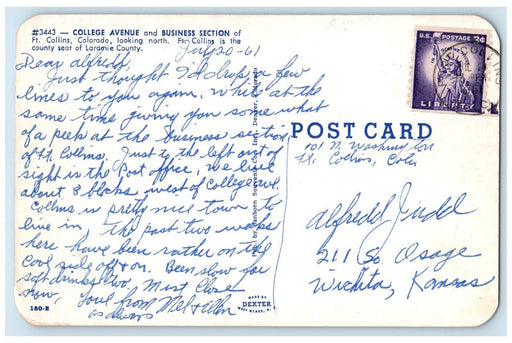 #3443 — COLLEGE AVENUE and BUSINESS SECTION of
Ft. Collins, Colorado, looking north. Ft. Collins is the
county seat of Laramie County.
July 20-61
Dear Alfredd,
Just thought I'd drop a few
lines to you again. While at the
same time giving you some what
of a peek at the business section
of Ft. Collins. Just to the left out of
sight is the Post office, we live
about 3 blocks west of College Ave.
Collins is pretty nice town to
live in, the past two weeks
here have been rather on the
cool side off + on. Been slow for
soft drinks two. Must Close
now, Your from Mel + Ellen
as always
180-B
MADE BY
DEXTER
WEST NYACK, N.Y.
U.S. POSTAGE 3¢
LIBERTY
COLLINS
POST CARD
101 N. Washington
Ft. Collins, Colo
Alfredd Judd
211 So Osage
Wichita, Kansas